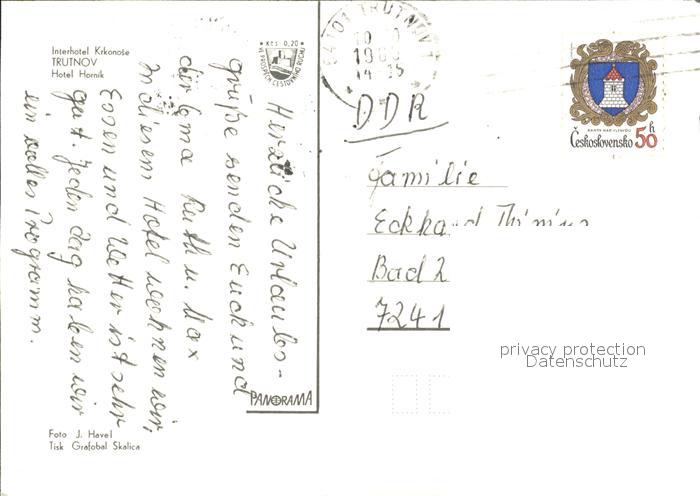 Interhotel Krkonoše
TRUTNOV
Hotel Horník
Kčs 0,20
VE PROSPĚCH CESTOVNÍHO RUCHU
Herzliche Urlaubs-
grüße senden Euch und
der Oma Ruth u. Max
In diesem Hotel wohnen wir,
Essen und Wetter ist sehr
gut. Jeden Tag haben wir
ein volles Programm.
Foto J. Havel
Tisk Grafobal Skalica
PANORAMA
TRUTNOV 1
14 - 15
DDR
Československo 50h
Familie
Eckhard
Bad
7241
privacy protection
Datenschutz